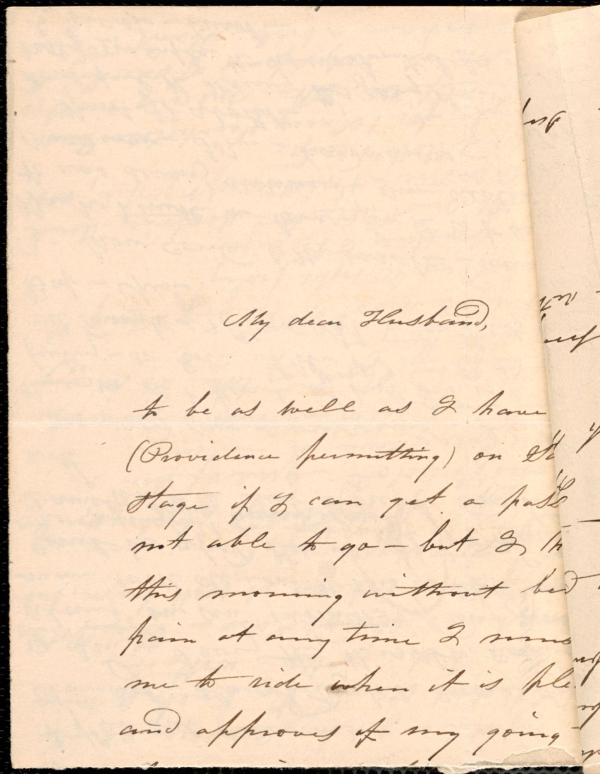 My dear Husband,
to be as well as I have
(Providence permitting) on
stage if I can get a
not able to go – but I
this morning without
pain at any time I
me to ride when it is
and approves of my going